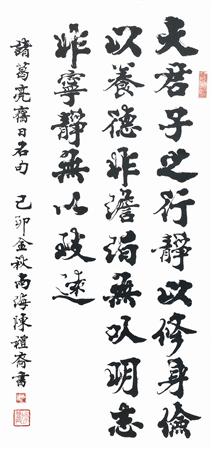 夫君子之行靜以修身儉
以養德非澹泊無以明志
非寧靜無以致遠
諸葛亮 名句 己卯金秋 海陳禮 書